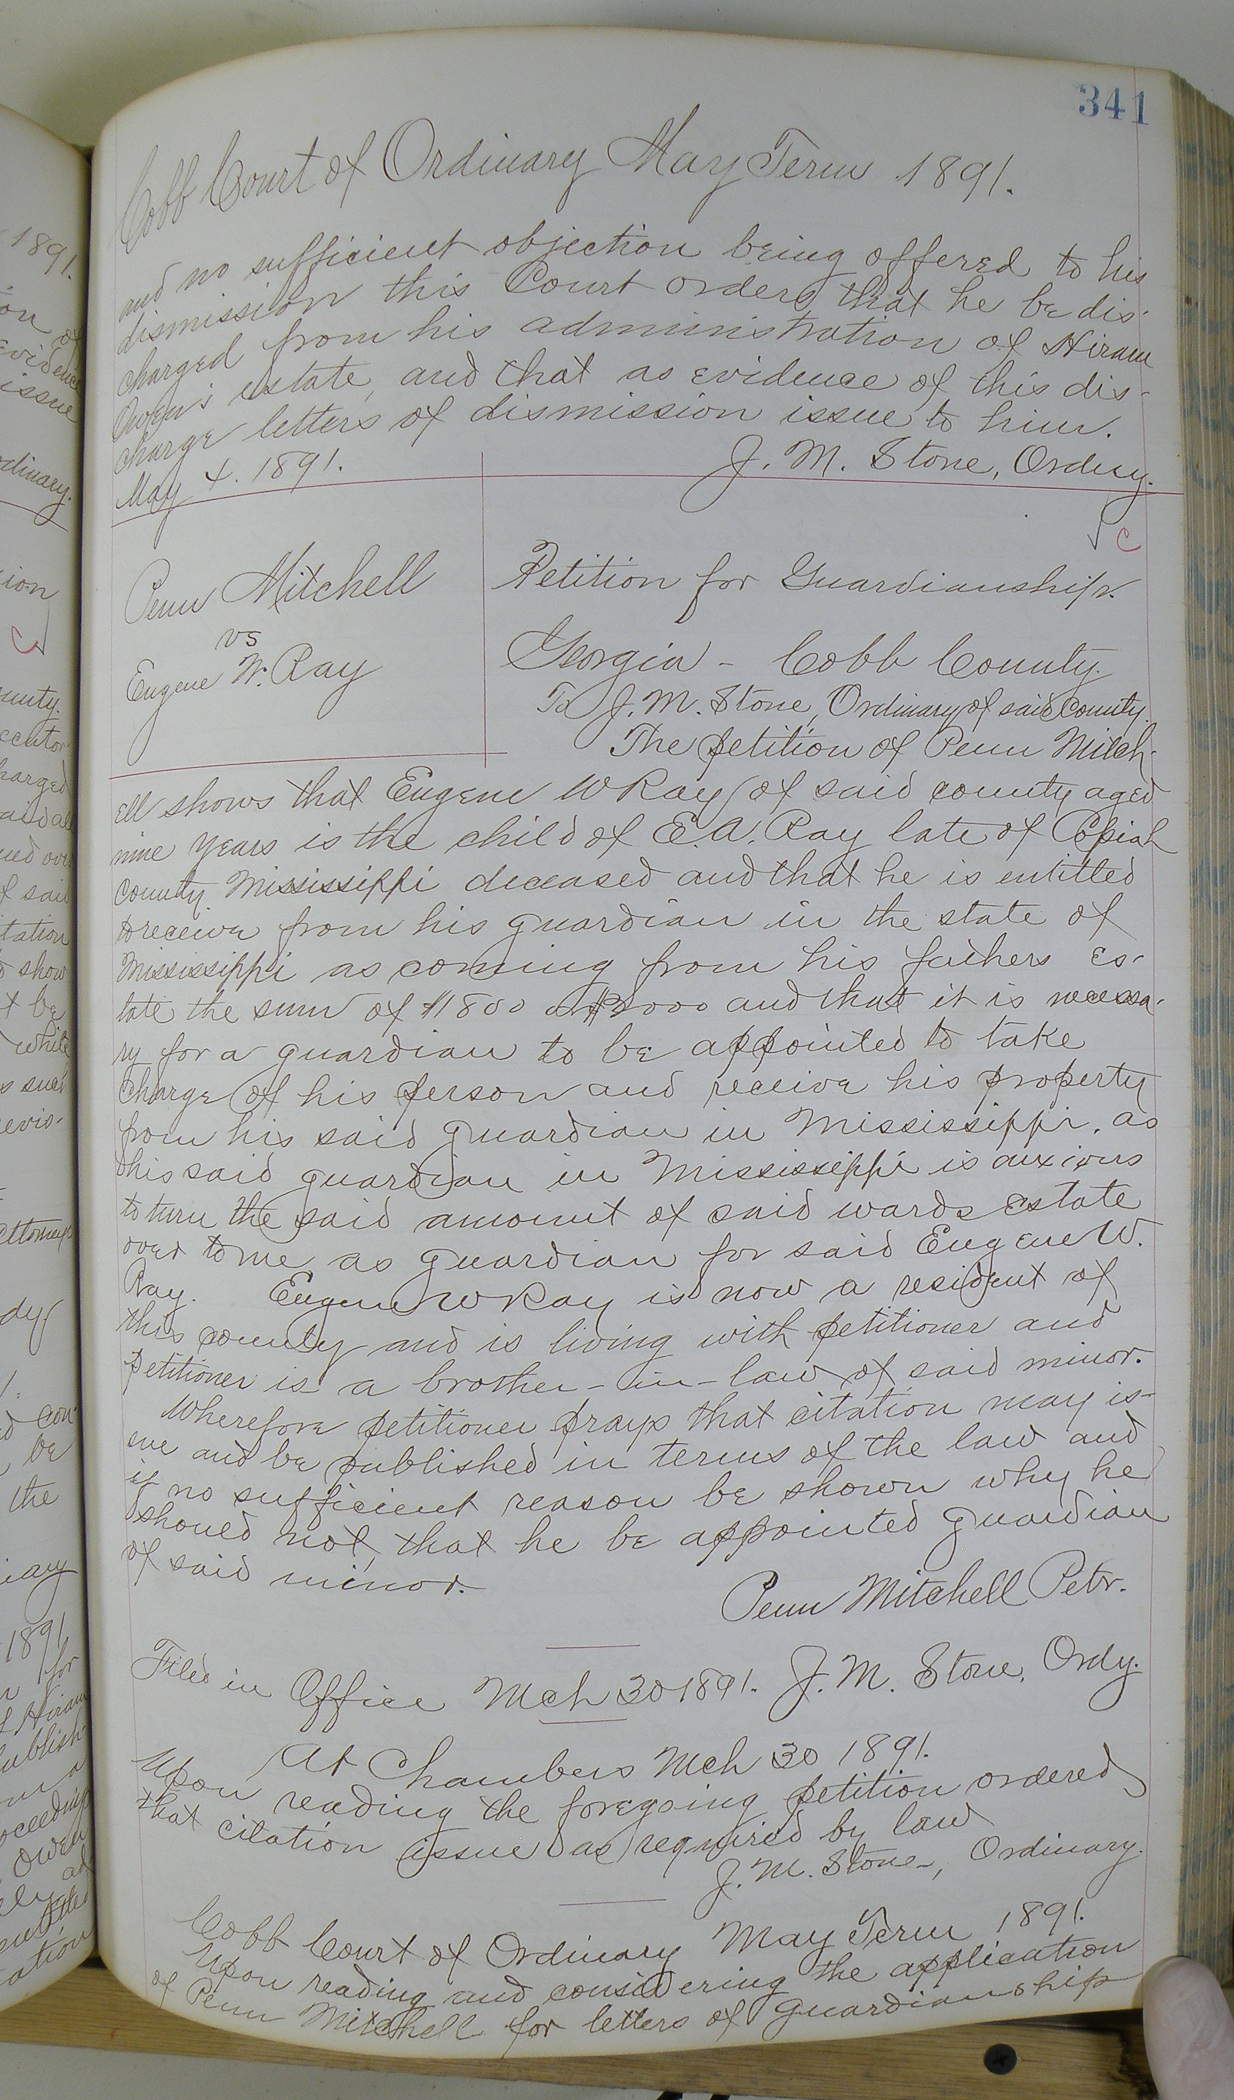 341
Cobb Court of Ordinary May Term 1891.
and no sufficient objection being offered to his
dismission this Court orders that he be dis-
charged from his administration of Hiram
Owen's estate, and that as evidence of this dis-
charge letters of dismission issue to him.
May 4. 1891.
J. M. Stone, Ordny.
c
Penn Mitchell
vs
Eugene W. Ray
Petition for Guardianship.
Georgia - Cobb County.
To J. M. Stone, Ordinary of said County.
The petition of Penn Mitch-
ell shows that Eugene W Ray of said county aged
nine years is the child of E. A. Ray late of Copiah
County Mississippi deceased and that he is entitled
to receive from his guardian in the state of
Mississippi as coming from his fathers es-
tate the sum of $1800 or $2000 and that it is necessa-
ry for a guardian to be appointed to take
charge of his person and receive his property
from his said guardian in Mississippi, as
his said guardian in Mississippi is anxious
to turn the said amount of said wards estate
over to me as guardian for said Eugene W.
Ray. Eugene W Ray is now a resident of
this county and is living with petitioner and
petitioner is a brother-in-law of said minor.
Wherefore petitioner prays that citation may is-
sue and be published in terms of the law and
if no sufficient reason be shown why he
should not, that he be appointed guardian
of said minor.
Penn Mitchell Petr.
Filed in Office Mch 30 1891. J. M. Stone, Ordy.
At Chambers Mch 30 1891.
Upon reading the foregoing petition ordered
that citation issue as required by law
J. M. Stone, Ordinary.
Cobb Court of Ordinary May Term 1891.
Upon reading and considering the application
of Penn Mitchell for letters of guardianship